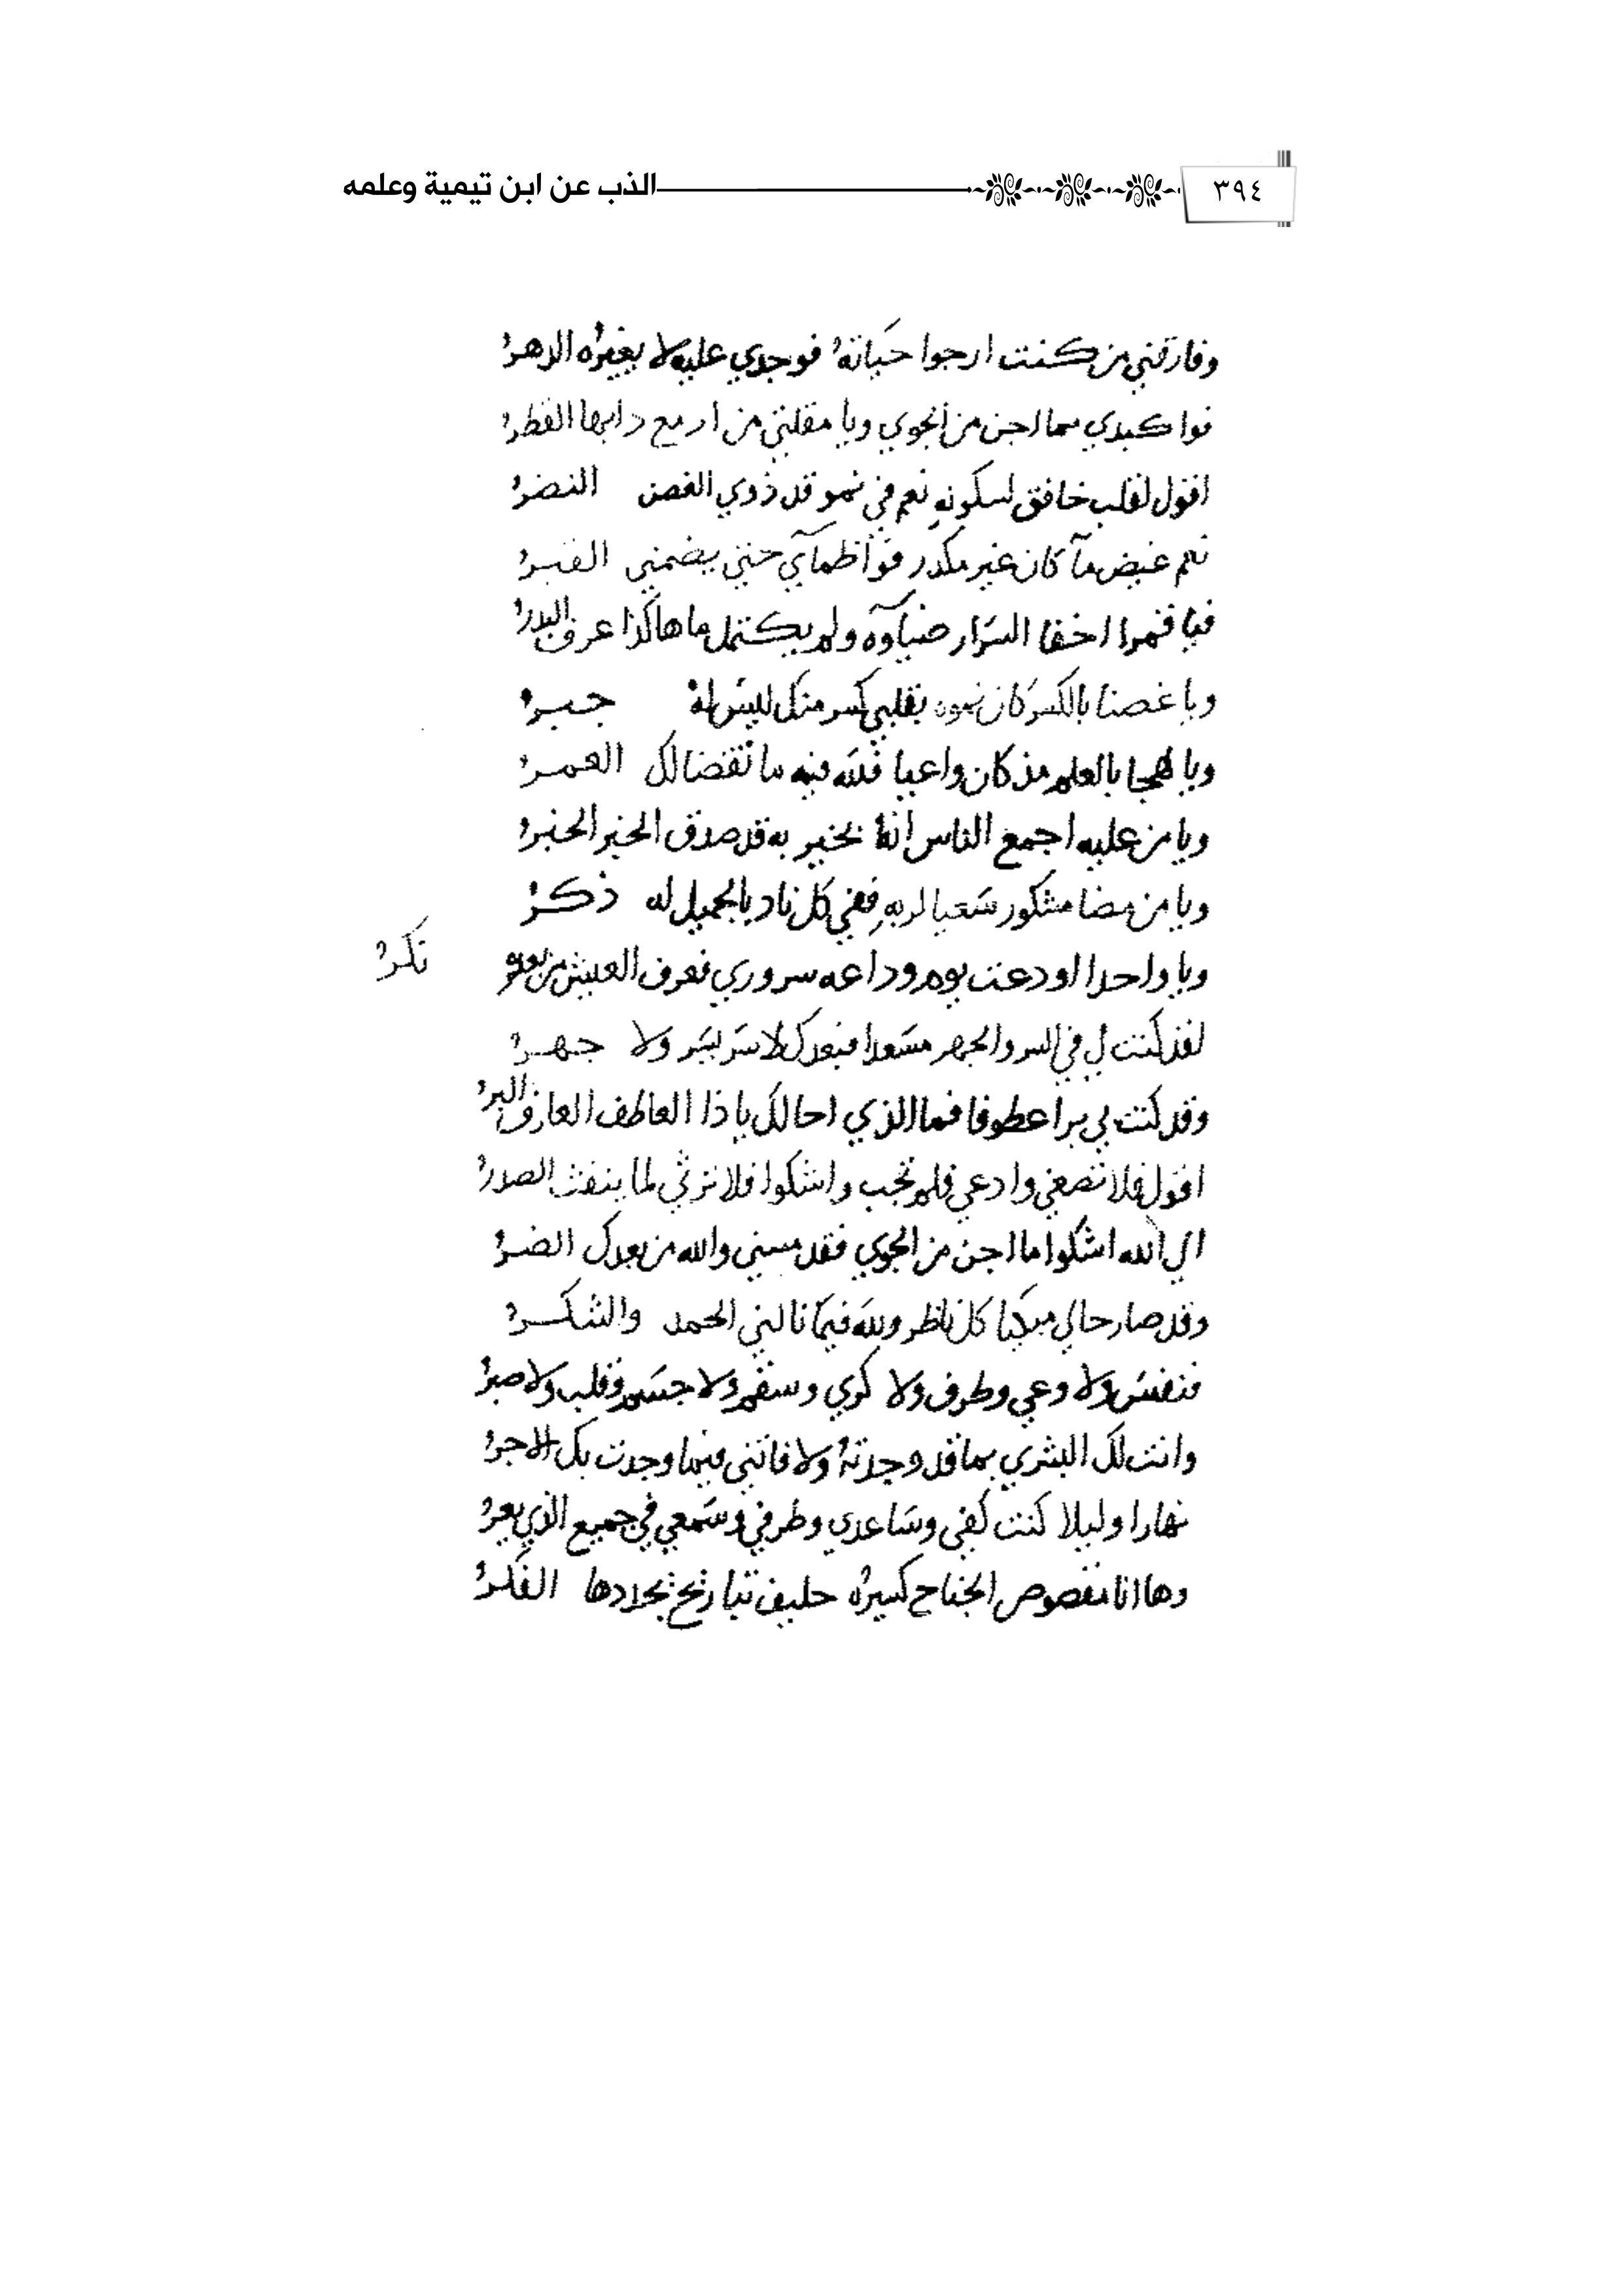 ٣٩٤ الذب عن ابن تيمية وعلمه
وفارقني من كنت ارجوا حياتهُ فوجدي عليه لا يغيره الدهرُ
فوا كبدي مما اجن من الجوي ويا مقلتي من ادمع دابها القطرُ
اقول لقلب خافق لسكونهِ نعم في نمو قد ذوي الغصن النضرُ
نعم غيض مآ كان غير مكدر فوا ظمآي حتي يضمني القبرُ
فيا قمرا اخفا السرار ضياوه ولم يكتمل ما هاكذا عرف البدرُ
ويا غصنا بالكسر كان نموه بقلبي كسر منك ليس لهُ جبرُ
ويا لهجا بالعلم مذ كان واعيا فلله فيه ما تقضا لك العمرُ
ويا من عليه اجمع الناس انهُ بخير به قد صدق الخبر الخبرُ
ويا من مضا مشكور سعيا لربهِ ففي كل ناد بالجميل له ذكرُ
ويا واحدا اودعت يوم وداعه سروري فعرف العيش من بعده نكرُ
لقد كنت لي في السر والجهر مسعدا فبعدك لا سر يسر ولا جهرُ
وقد كنت بي برا عطوفا فما الذي احالك يا ذا العاطف العارف البرُ
اقول فلا تصغي وادعي فلم تجب واشكوا فلا ترثي لما ينفث الصدرُ
الي الله اشكوا ما اجن من الجوي فقد مسني والله من بعدك الضرُ
وقد صار حالي مبكيا كل ناظر ولله فيما نالني الحمد والشكرُ
فنفس ولا وعي وطرف ولا كري وسقم ولا جسم وقلب ولا صبرُ
وانت لك البشري بما قد وجدتهُ ولا فاتني فيما وجدت بك الاجرُ
نهارا وليلا كنت كفي وساعدي وطرفي وسمعي في جميع الذي يعرُ
وها انا مقصوص الجناح كسيرهُ حليف تباريح تجددها الفكرُ